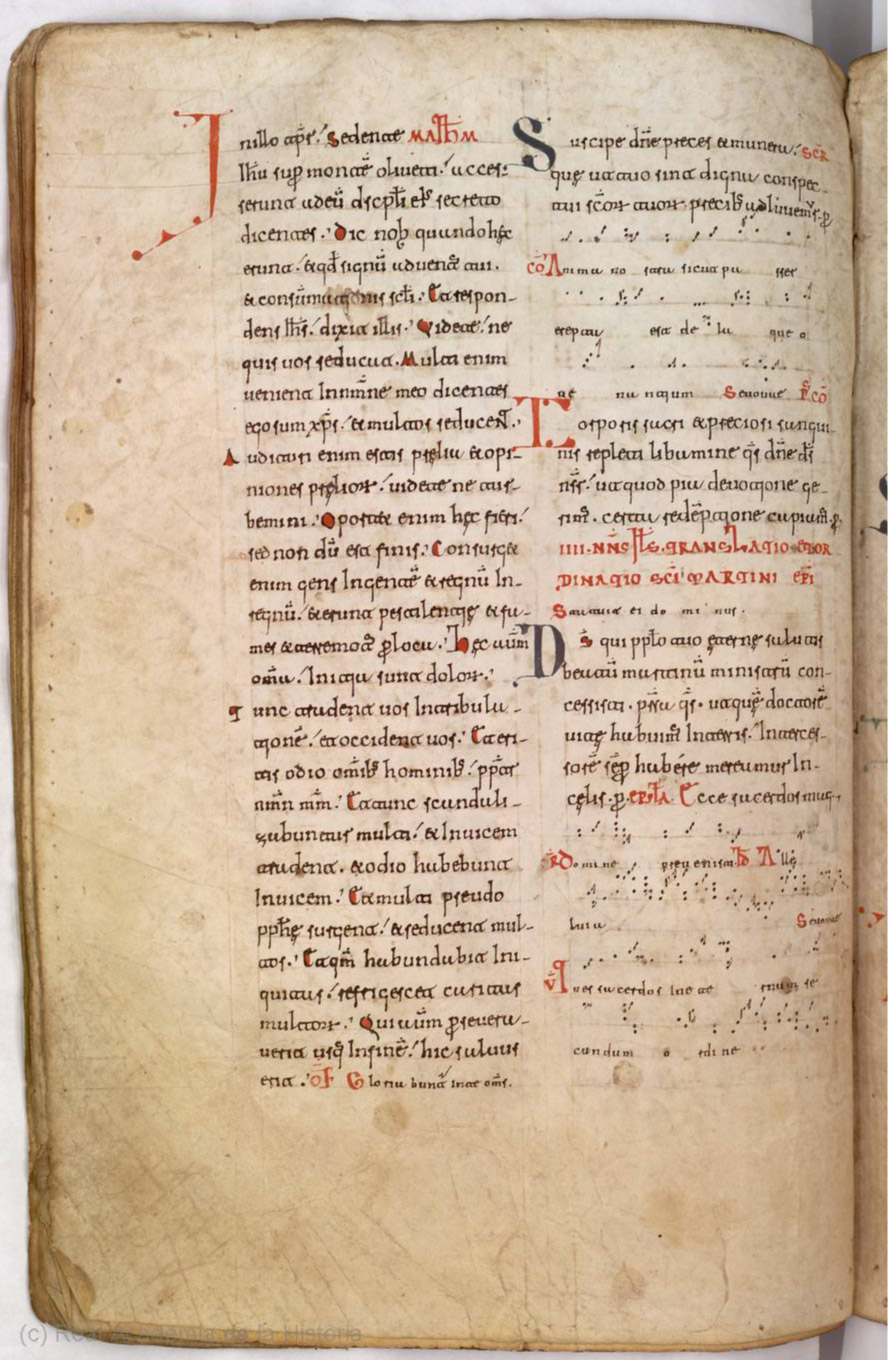 Inillo tp̄r. Sedente MATħM
Ihu sup montē oliueti. acces
serunt adeū discpli ei secreto
dicentes. Dic nob quando hęc
erunt. & qd signū aduent tui.
& consūmationis scli. Et respon-
dens ihs. dixit illis. Videte ne
quis uos seducat. Multi enim
uenient In nmne meo dicentes
ego sum xps. & multos seducent.
Audituri enim estis pręlia & opi-
niones pręlior. uidete ne tur-
bemini. Oportet enim hęc fieri.
sed non dū est finis. Consurget
enim gens In gentē & regnū In
regnū. & erunt pestilentię & fa-
mes & terremot p loca. Hęc autm
omia. Initia sunt dolor.
Tunc tradent uos In tribula-
tionē. et occident uos. Et eri-
tis odio omib hominib. ppter
nmn mm. Et tunc scandali-
zabuntur multi. & Inuicem
tradent. & odio habebunt
Inuicem. Et multi pseudo
pphę surgent. & seducent mul-
tos. Et qm habundabit Ini-
quitas. refrigescet caritas
multor. Qui autm pseuera-
uerit usq In finē. hic saluus
erit. OF Gloria bunt in te oms.
Suscipe dne preces & munera. SCR
quę ut tuo sint digna conspec
tui scor tuor precib adiuuemr. p
CO Anima nostra sicut passer
erepta est de laqueo
ue nantium Seuouae PCO
Corporis sacri & preciosi sangui-
nis repleti libamine qs dne ds
nsr. ut quod pia deuotione ge-
rim. certa redēptione capiam. p.
IIII NNS IVL TRANSLATIO ET OR
DINATIO SCI MARTINI EPI
Statuit ei dominus.
Ds qui pplo tuo ęternę salutis
beatū martinū ministrū con-
cessisti. psta qs. ut quę doctorē
uitę habuim In terris. Interces-
sorē sēp habere mereamur In
cęlis. p. EPLA. Ecce sacerdos mag
R Domine preuenisti Allę
luia Seuouae
V Tu es sacerdos in eternum se
cundum ordine
(c) Real Academia de la Historia